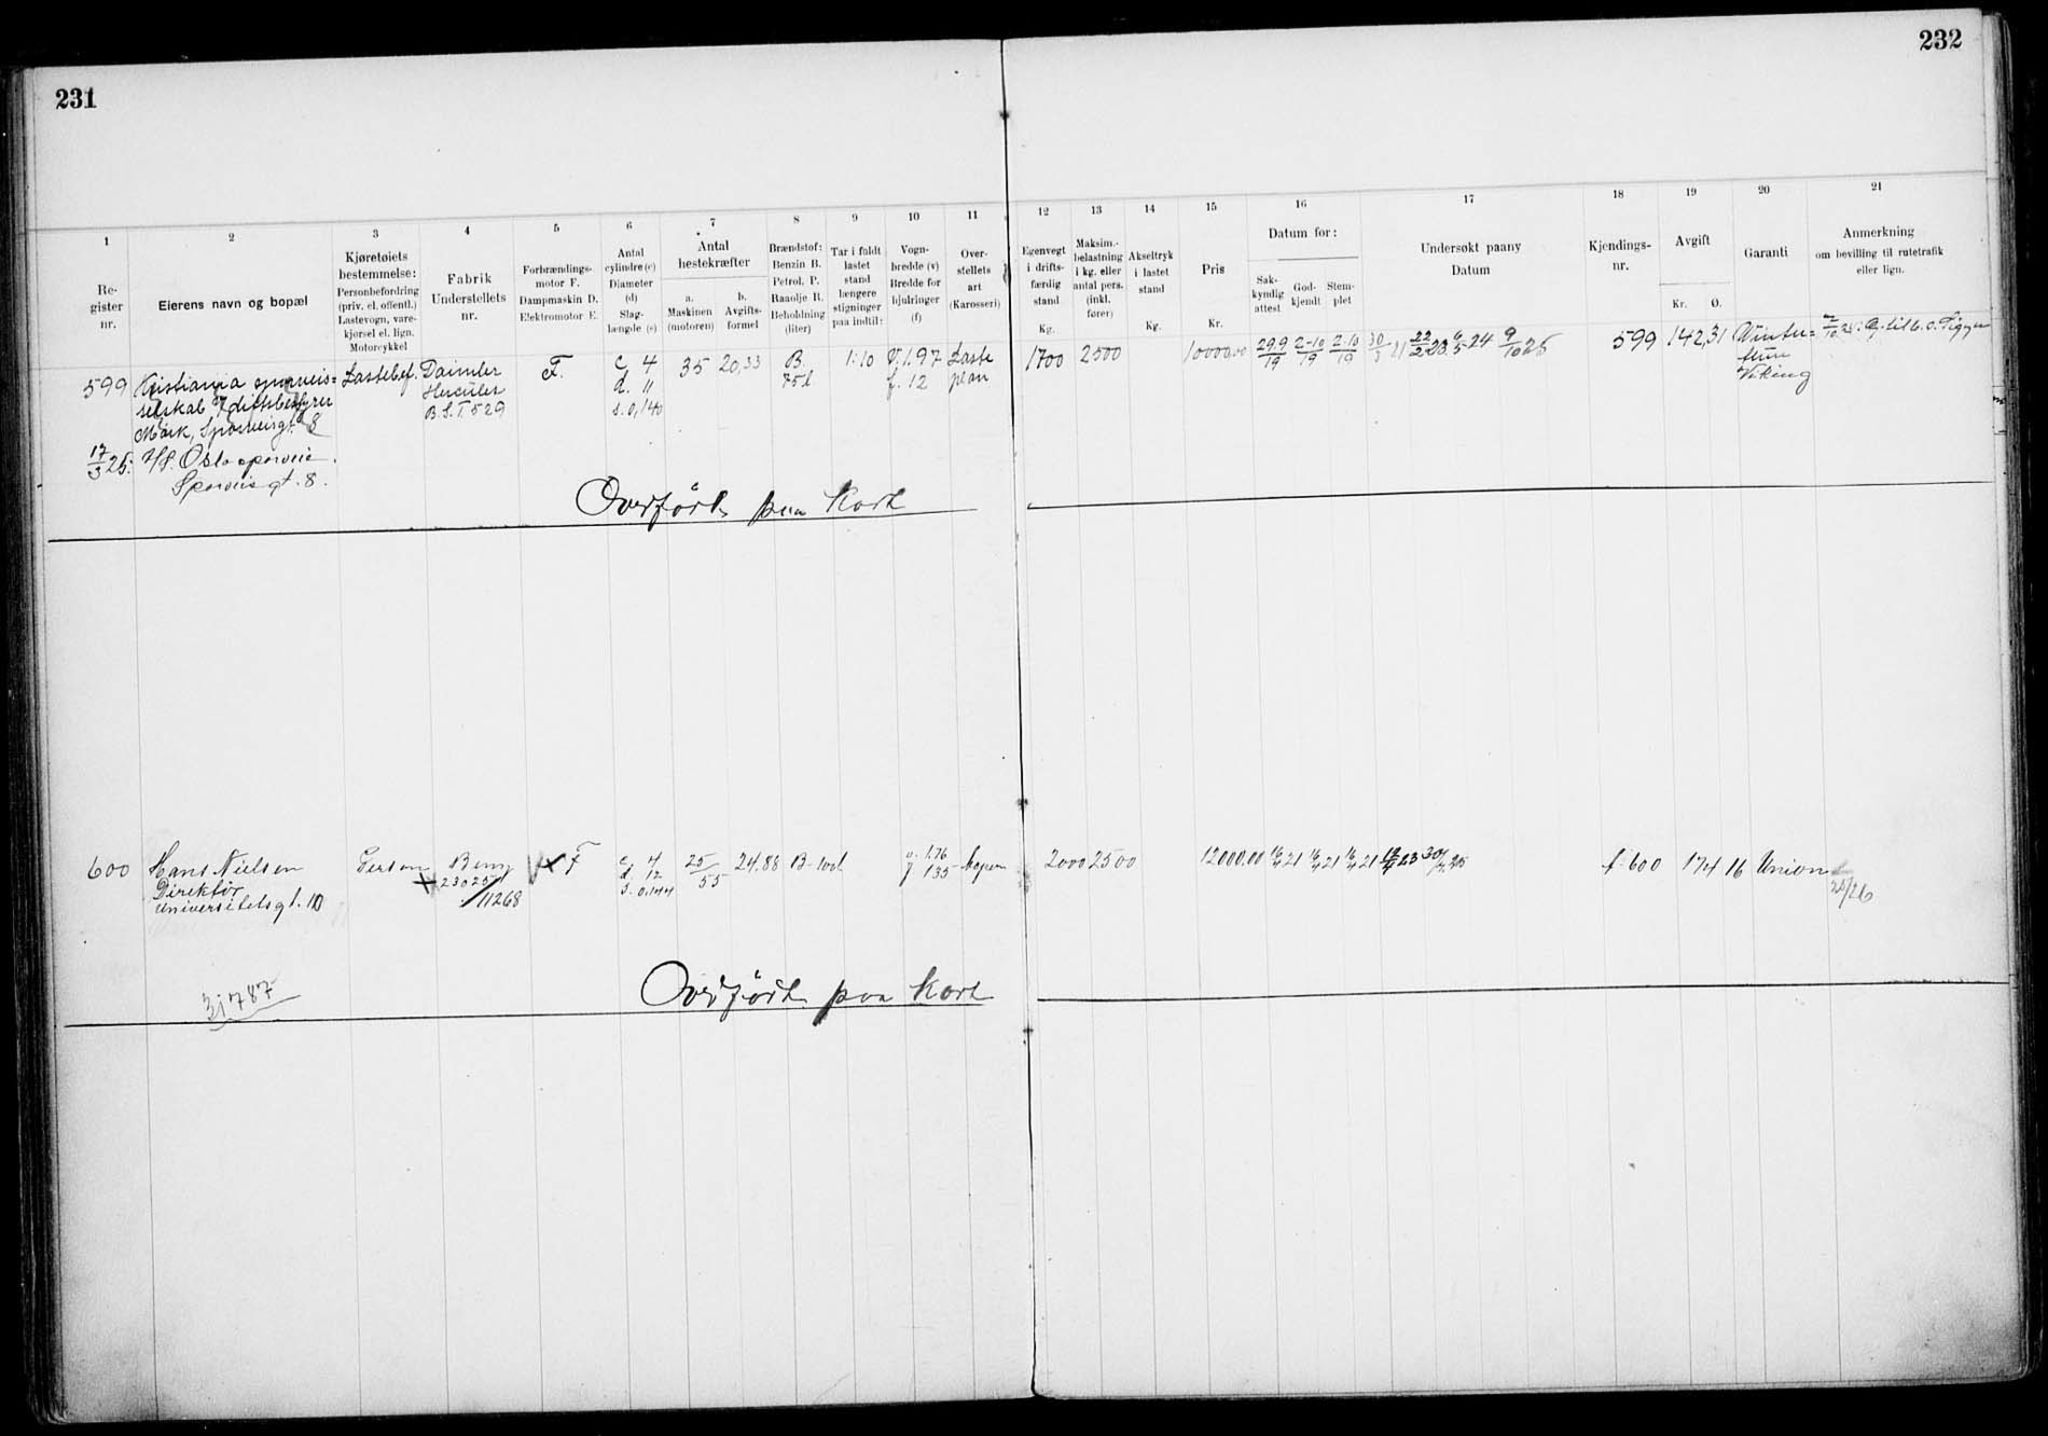 231
232
1 2 3 4 5 6 7 8 9 10 11
Re-
gister
nr.
Eierens navn og bopæl
Kjøretøiets
bestemmelse:
Personbefordring
(priv. el. offentl.)
Lastevogn, vare-
kjørsel el. lign.
Motorcykkel
Fabrik
Understellets
nr.
Forbrændings-
motor F.
Dampmaskin D.
Elektromotor E.
Antal
cylindre (c)
Diameter
(d)
Slag-
længde (s)
Antal
hestekræfter
a.
Maskinen
(motoren)
b.
Avgifts-
formel
Brændstof:
Benzin B.
Petrol. P.
Raaolje R.
Beholdning
(liter)
Tar i fuldt
lastet
stand
længere
stigninger
paa indtil:
Vogn-
bredde (v)
Bredde for
hjulringer
(f)
Over-
stellets
art
(Karosseri)
12 13 14 15 16 17 18 19 20 21
Egenvegt
i drifts-
færdig
stand
Kg.
Maksim.-
belastning
i kg. eller
antal pers.
(inkl.
fører)
Akseltryk
i lastet
stand
Kg.
Pris
Kr.
Datum for:
Sak-
kyndig
attest
God-
kjendt
Stem-
plet
Undersøkt paany
Datum
Kjendings-
nr.
Avgift
Kr. Ø.
Garanti
Anmerkning
om bevilling til rutetrafik
eller lign.
599
Kristiania sporveis=
selskab v/ driftsbestyrer
Mørk, Sporveisgt. 8
Lastebef.
Daimler
Hercules
B.S.T 529
F.
c 4
d. "
s. 0,140
35
20,33
B.
75 l
1:10
V. 1.97
f. 12
Laste
plan
1700
2500
10000,00
29.9/19
2-10/19
2-10/19
30/3 21 22/2 23 6/5 24 9/10 25
599
142,31
Winter=
Viking
17/3 25:
A/S. Oslo sporveie
Sporveisgt. 8.
Overført paa Kort
600
Hans Nielsen
Direktør
Universitetsgt. 10
Person
Benz
+ 23025
/11268
F
c 4
d 12
s. 0,144
25/55
24,88
B-100l
v. 1.76
f 135
2000
2500
12000.00
f-600
174 16
Union
25/26
31787
Overført paa Kort